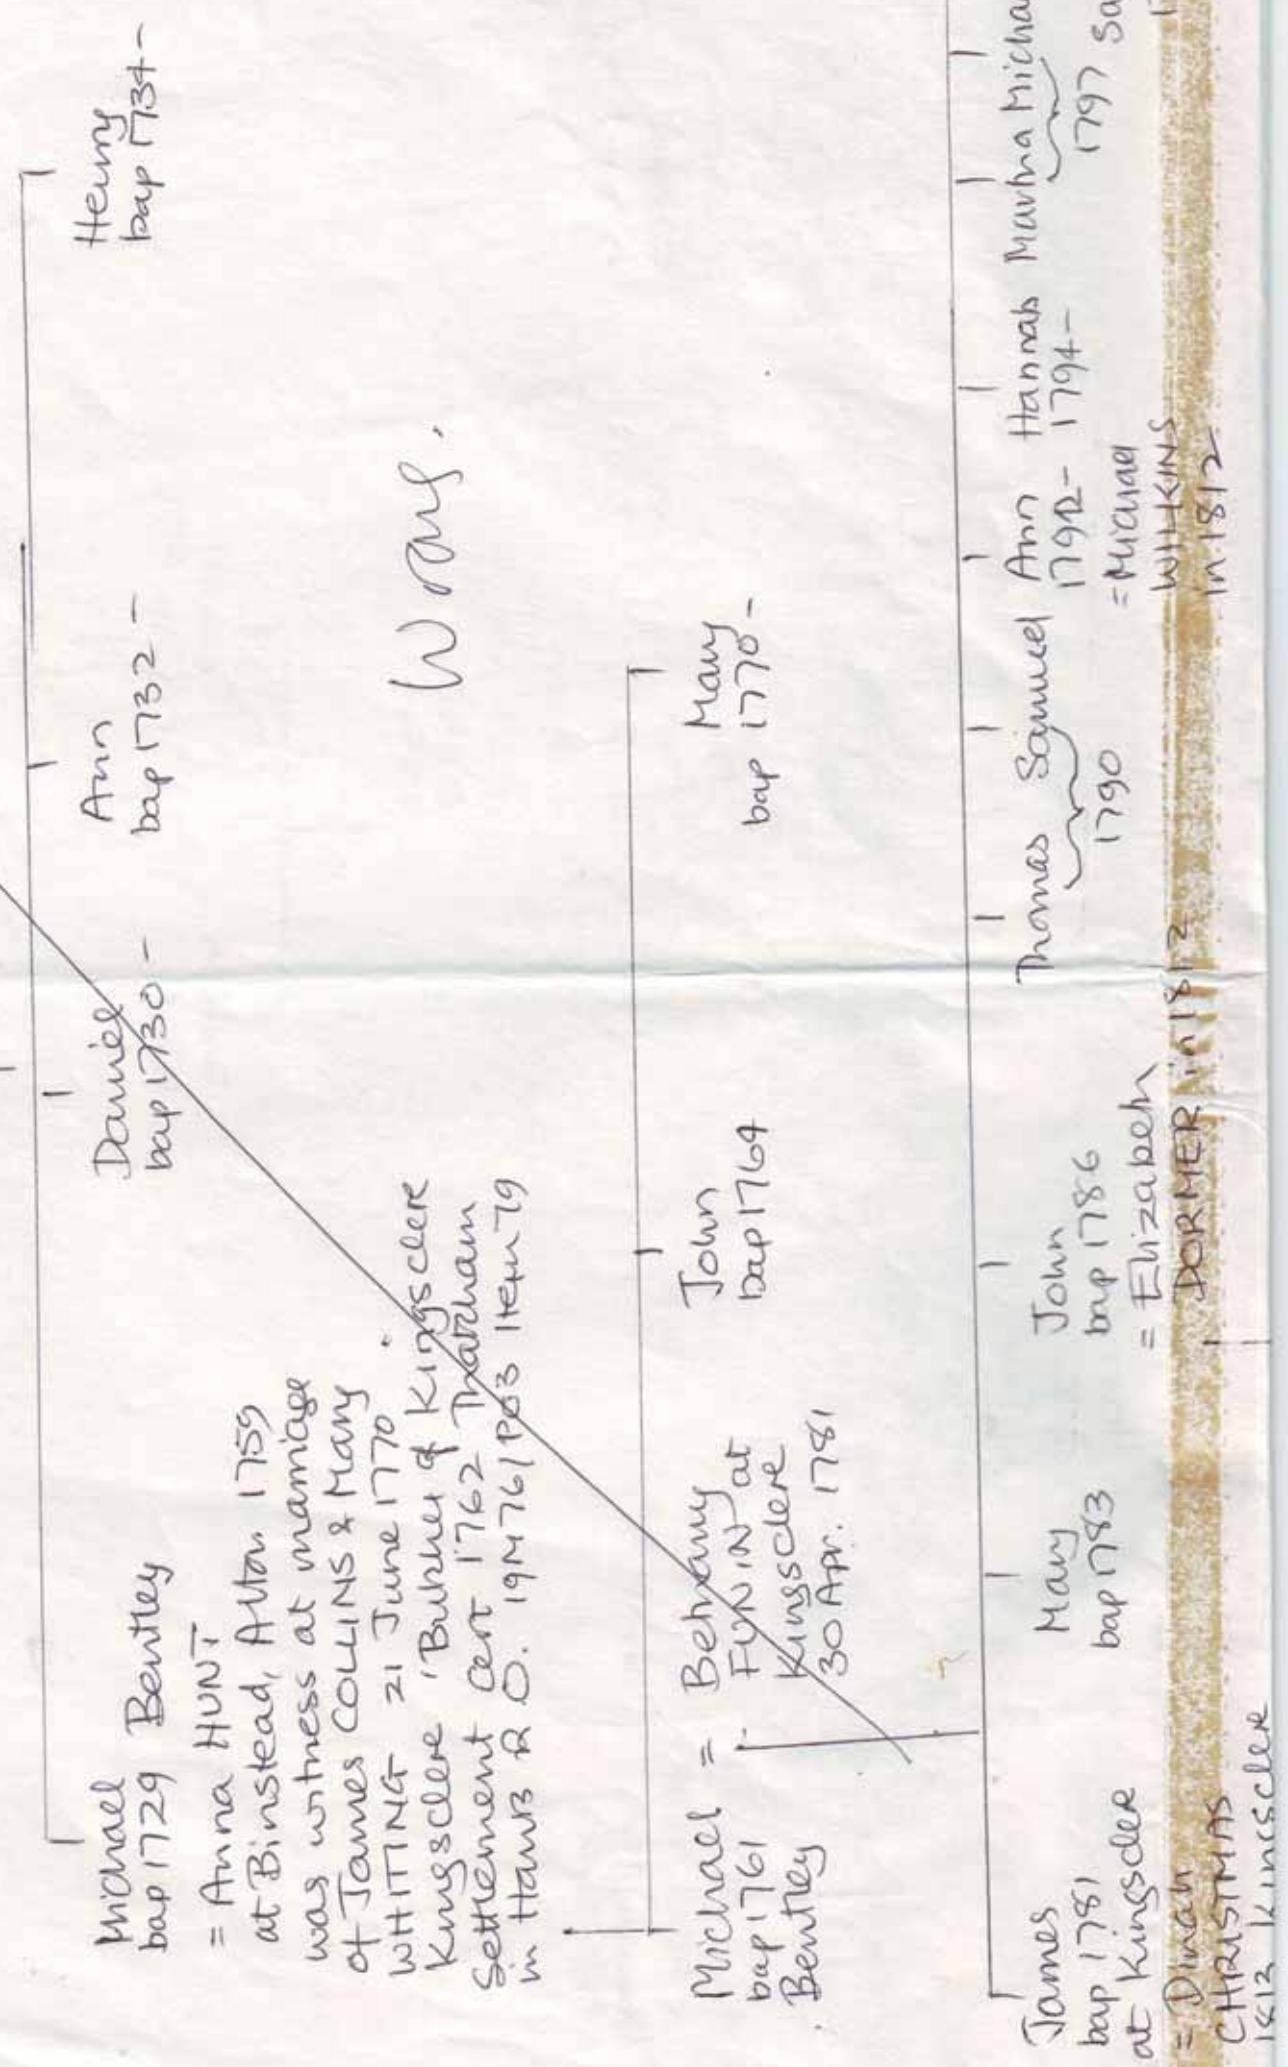 Michael
bap 1729 Bentley
= Anna HUNT
at Binstead, Alton 1759
was witness at marriage
of James COLLINS & Mary
WHITING 21 June 1770
Kingsclere 'Butcher of Kingsclere
Settlement Cert 1762 Thatcham
in Hants R O. 19M76/PO3 Item 79
Daniel
bap 1730 -
Ann
bap 1732 -
Henry
bap 1734 -
Wrong.
Michael =
bap 1761
Bentley
Bethany
at
Kingsclere
30 Apr. 1781
John
bap 1764
Mary
bap 1770 -
James
bap 1781
at Kingsclere
= Dinah
CHRISTMAS
1812 Kingsclere
Mary
bap 1783
John
bap 1786
= Elizabeth
DORMER in 1812
Thomas Samuel
1790
Ann
1792-
= Michael
WILKINS
in 1812
Hannah
1794-
Martha Micha
1797
Sa